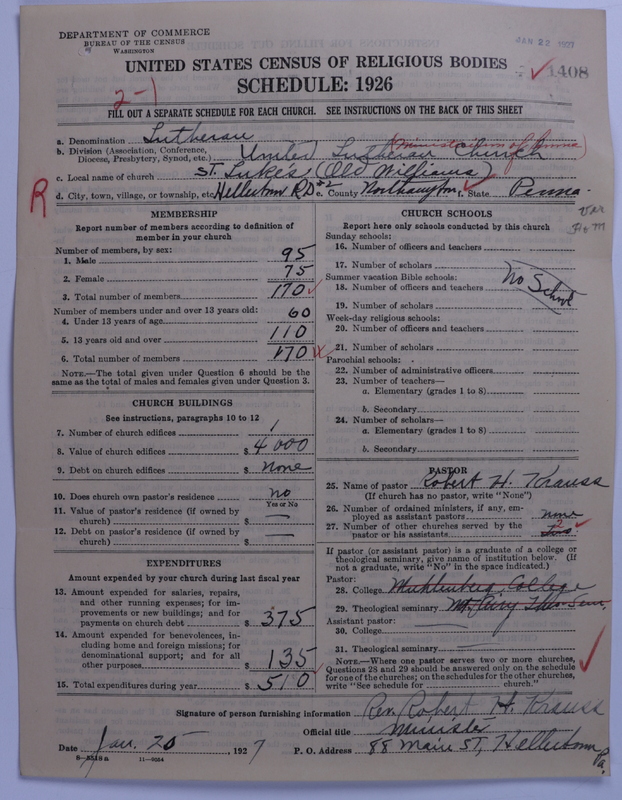 DEPARTMENT OF COMMERCE
BUREAU OF THE CENSUS
WASHINGTON
JAN 22 1927
UNITED STATES CENSUS OF RELIGIOUS BODIES
SCHEDULE: 1926
1408
2-1
FILL OUT A SEPARATE SCHEDULE FOR EACH CHURCH. SEE INSTRUCTIONS ON THE BACK OF THIS SHEET
a. Denomination Lutheran
b. Division (Association, Conference, Diocese, Presbytery, Synod, etc.) United Lutheran Church (Ministerium of Penna)
c. Local name of church St. Luke's (Old Williams)
R
d. City, town, village, or township, etc. Hellertown RD #2 e. County Northampton f. State Penna.
MEMBERSHIP
Report number of members according to definition of
member in your church
Number of members, by sex:
1. Male 95
2. Female 75
3. Total number of members 170
Number of members under and over 13 years old:
4. Under 13 years of age 60
5. 13 years old and over 110
6. Total number of members 170
NOTE.—The total given under Question 6 should be the
same as the total of males and females given under Question 3.
CHURCH BUILDINGS
See instructions, paragraphs 10 to 12
7. Number of church edifices 1
8. Value of church edifices $ 4000
9. Debt on church edifices $ none
10. Does church own pastor's residence no
Yes or No
11. Value of pastor's residence (if owned by
church) $ —
12. Debt on pastor's residence (if owned by
church) $ —
EXPENDITURES
Amount expended by your church during last fiscal year
13. Amount expended for salaries, repairs,
and other running expenses; for im-
provements or new buildings; and for
payments on church debt $ 375
14. Amount expended for benevolences, in-
cluding home and foreign missions; for
denominational support; and for all
other purposes $ 135
15. Total expenditures during year $ 510
CHURCH SCHOOLS
Report here only schools conducted by this church
Sunday schools:
16. Number of officers and teachers
17. Number of scholars
Summer vacation Bible schools:
18. Number of officers and teachers
No School
19. Number of scholars
Week-day religious schools:
20. Number of officers and teachers
21. Number of scholars
Parochial schools:
22. Number of administrative officers
23. Number of teachers—
a. Elementary (grades 1 to 8)
b. Secondary
24. Number of scholars—
a. Elementary (grades 1 to 8)
b. Secondary
PASTOR
25. Name of pastor Robert H. Krauss
(If church has no pastor, write "None")
26. Number of ordained ministers, if any, em-
ployed as assistant pastors none
27. Number of other churches served by the
pastor or his assistants 2
If pastor (or assistant pastor) is a graduate of a college or
theological seminary, give name of institution below. (If
not a graduate, write "No" in the space indicated.)
Pastor:
28. College Muhlenberg College
29. Theological seminary Mt. Airy Theo. Sem.
Assistant pastor:
30. College —
31. Theological seminary —
NOTE.—Where one pastor serves two or more churches,
Questions 28 and 29 should be answered only on the schedule
for one of the churches; on the schedules for the other churches,
write "See schedule for church."
Signature of person furnishing information Rev. Robert H. Krauss
Official title Minister
Date Jan. 20, 1927 P. O. Address 88 Main St, Hellertown Pa.
8—5518 a 11—9054